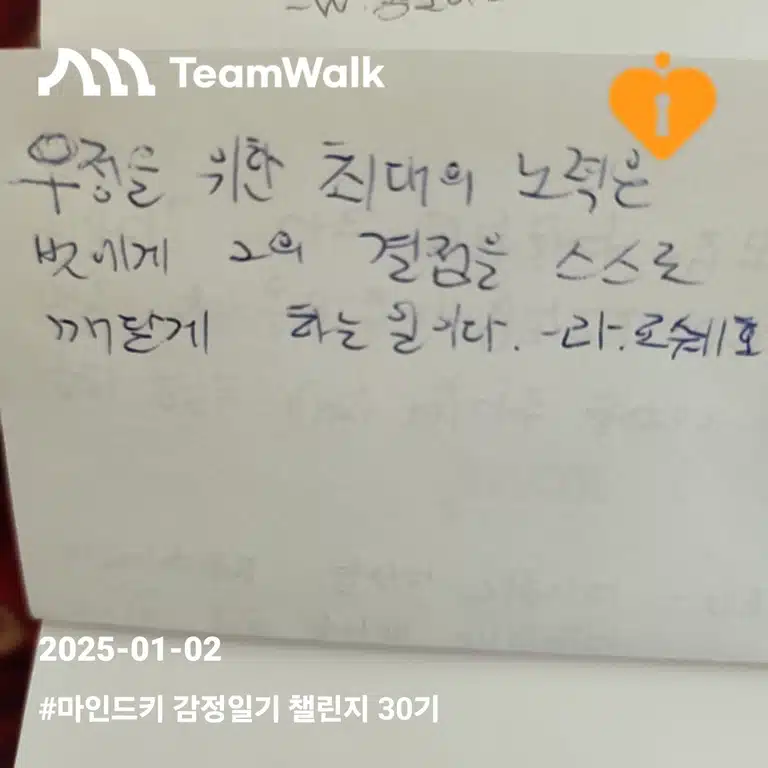 TeamWalk
우정을 위한 최대의 노력은
벗에게 그의 결점을 스스로
깨닫게 하는 일이다. -라.로슈푸코
2025-01-02
#마인드키 감정일기 챌린지 30기